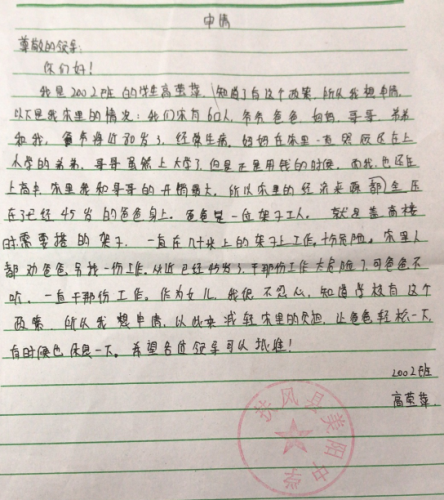 申请
尊敬的领导:
你们好!
我是2002班的学生高蕊萍,知道了有这个政策,所以我想申请
以下是我家里的情况:我们家有6口人,爷爷爸爸妈妈,哥哥,弟弟
和我,爷爷将近80岁了,经常生病,妈妈在家里一直照顾还在上
小学的弟弟,哥哥虽然上大学了,但是正是用钱的时候,而我,也还在
上高中,家里我和哥哥的开销最大,所以家里的经济来源都全压
在了已经45岁的爸爸身上。爸爸是一位架子工人,就是盖高楼
时需要搭的架子,一直在几十米上的架子上工作,十分危险。家里人
都劝爸爸另找一份工作,你已经45岁了,干那份工作太危险了,可爸爸不
听,一直干那份工作。作为女儿,我很不忍心,知道学校有这个
政策,所以我想申请,以此来减轻家里的负担,让爸爸轻松一下,
有时候也休息一下。希望各位领导可以批准!
2002班
高蕊萍
扶风县美阳中学